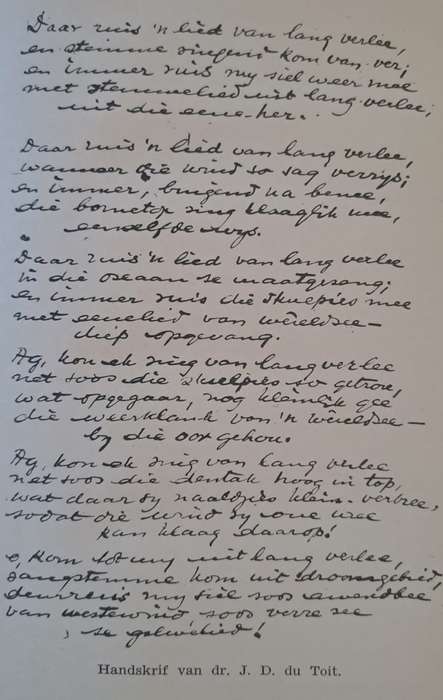 Daar ruis 'n lied van lang verlee,
en stemme singend kom van ver;
en immer ruis my siel weer mee
met stemmelied uit lang verlee,
uit die eeue her.
Daar ruis 'n lied van lang verlee,
wanneer die wind so sag verrys;
en immer, buigend na benee,
die boometop sing klaaglik mee,
eenselfde wys.
Daar ruis 'n lied van lang verlee
in die oseaan se maatgesang;
en immer ruis die skulpies mee
met eeuelied van wêreldsee —
diep opgevang.
Ag, kon ek sing van lang verlee
net soos die skulpies so getrou,
wat opgegaar, nog klanklik gee
die weerklank van 'n wêreldsee —
by die oor gehou.
Ag, kon ek sing van lang verlee
net soos die dentak hoog in top,
wat daar sy naaldjies klein-verbree,
sodat die wind sy oue wee
kan klaag daarop!
o, kom tot my uit lang verlee,
sangstemme kom uit droomgebied,
deurruis my siel soos awendbee
van westewind soos verre see
se golwelied!
Handskrif van dr. J. D. du Toit.